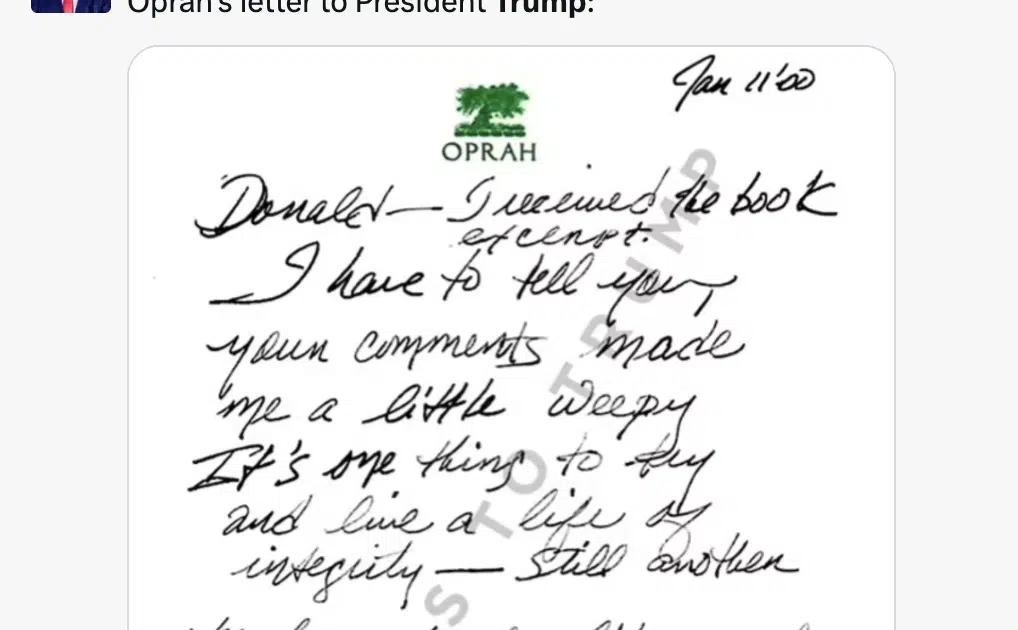 Oprah's letter to President Trump:
Jan 11'00
OPRAH
Donald — I received the book
excerpt.
I have to tell you,
your comments made
me a little weepy
It's one thing to try
and live a life of
integrity — still another
S TO TRUMP